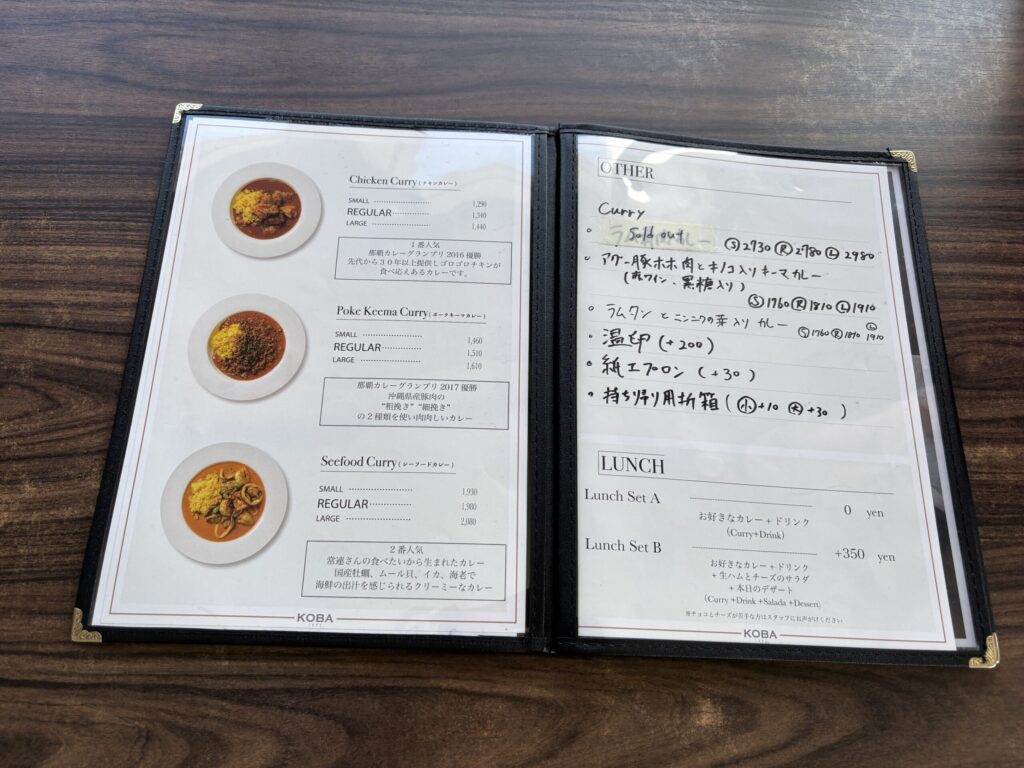 Chicken Curry(チキンカレー)
SMALL 1,290
REGULAR 1,340
LARGE 1,440
1番人気
那覇カレーグランプリ2016優勝
先代から30年以上提供しゴロゴロチキンが
食べ応えあるカレーです。
Poke Keema Curry(ポークキーマカレー)
SMALL 1,460
REGULAR 1,510
LARGE 1,610
那覇カレーグランプリ2017優勝
沖縄県産豚肉の
"粗挽き" "細挽き"
の2種類を使い肉肉しいカレー
Seefood Curry(シーフードカレー)
SMALL 1,930
REGULAR 1,980
LARGE 2,080
2番人気
常連さんの食べたいから生まれたカレー
国産牡蠣、ムール貝、イカ、海老で
海鮮の出汁を感じられるクリーミーなカレー
KOBA
OTHER
Curry
Sold out カレー Ⓢ2730 Ⓡ2780 Ⓛ2980
アグー豚ホホ肉とキノコ入りキーマカレー
(赤ワイン、黒糖入り)
Ⓢ1760 Ⓡ1810 Ⓛ1910
ラムタンとニンニクの芽入りカレー Ⓢ1760 Ⓡ1810 Ⓛ1910
温卵(+200)
紙エプロン(+30)
持ち帰り用折箱(㊙小+10 大+30)
LUNCH
Lunch Set A 0 yen
お好きなカレー+ドリンク
(Curry+Drink)
Lunch Set B +350 yen
お好きなカレー+ドリンク
+生ハムとチーズのサラダ
+本日のデザート
(Curry+Drink+Salada+Dessert)
※チョコとチーズが苦手な方はスタッフにお声がけください
KOBA